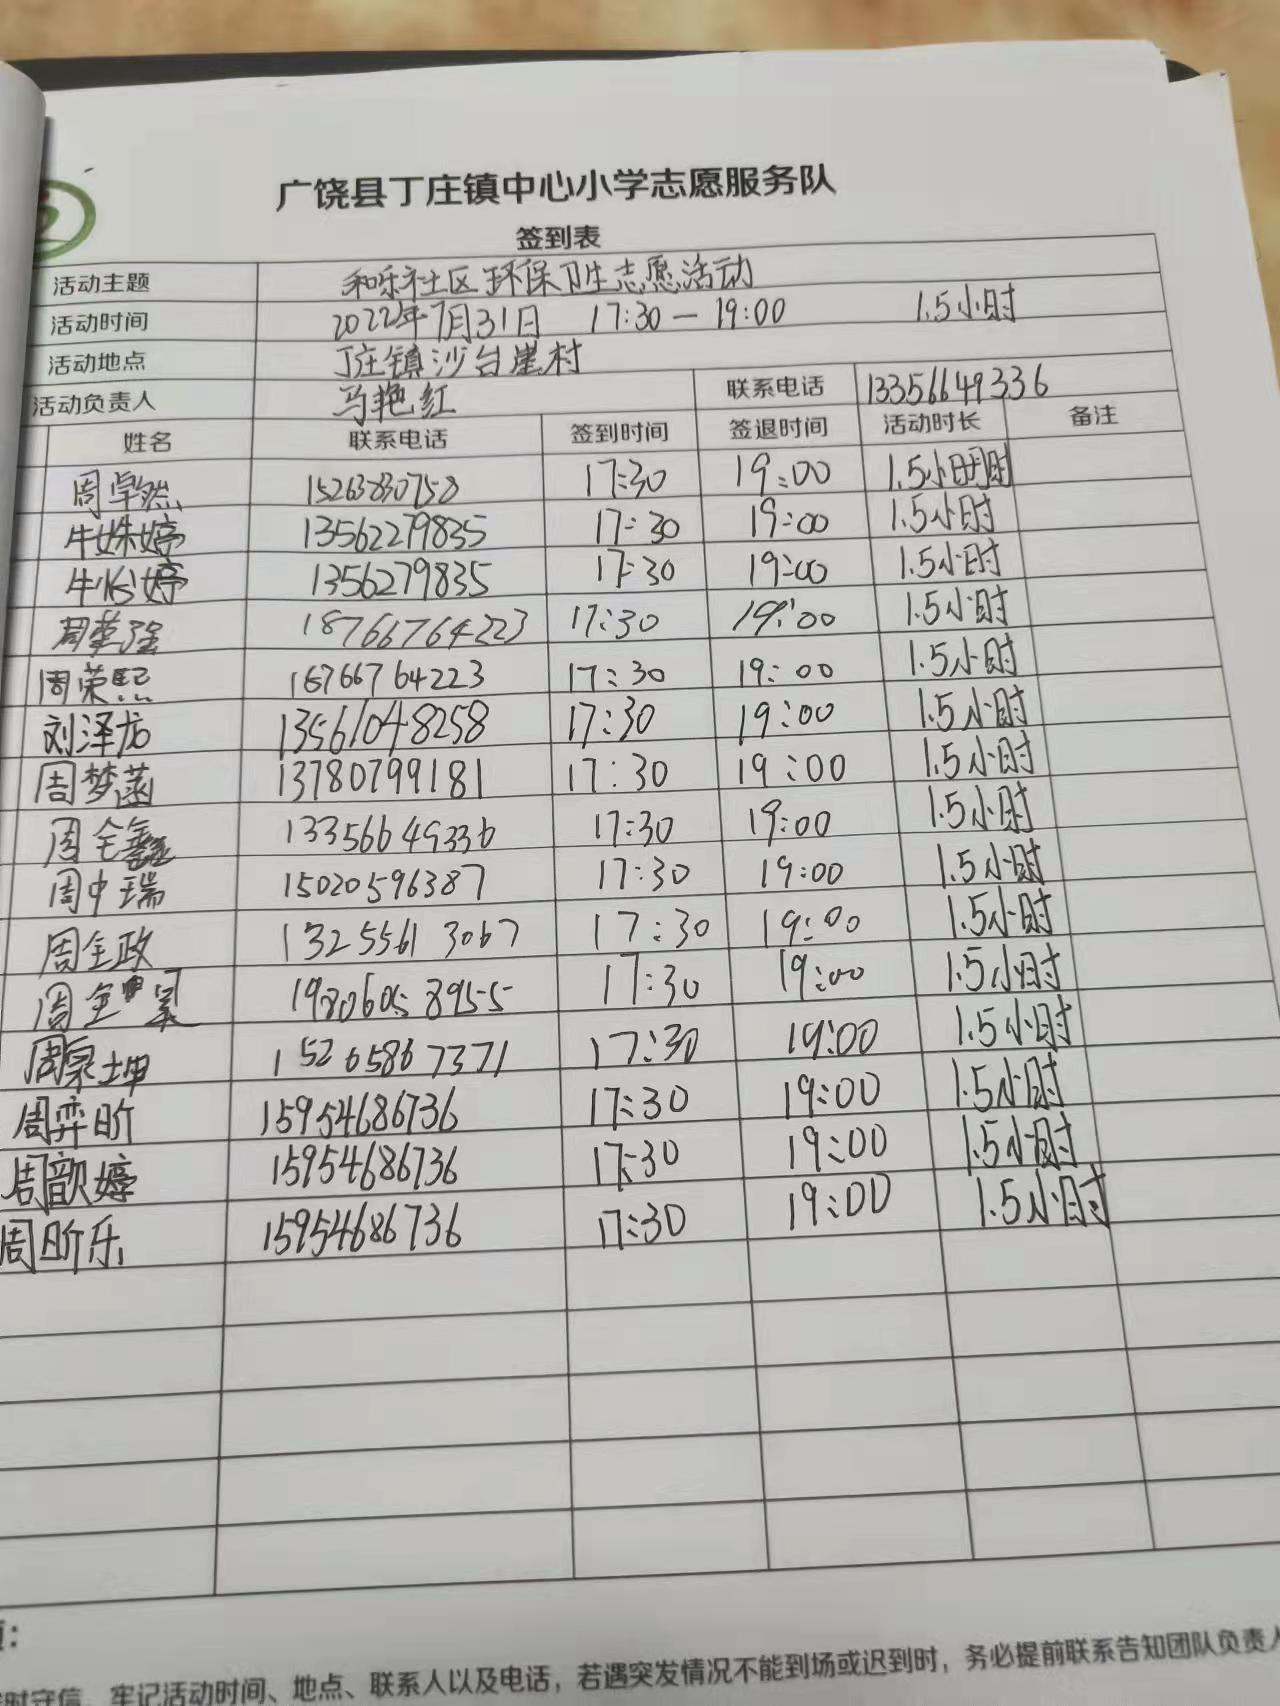 广饶县丁庄镇中心小学志愿服务队
签到表
活动主题 和乐社区环保卫生志愿活动
活动时间 2022年7月31日 17:30—19:00 1.5小时
活动地点 丁庄镇沙台崖村
活动负责人 马艳红 联系电话 13356649336
姓名 联系电话 签到时间 签退时间 活动时长 备注
周卓然 15263830758 17:30 19:00 1.5小时
牛姝婷 13562279835 17:30 19:00 1.5小时
牛怡婷 1356279835 17:30 19:00 1.5小时
周荣强 18766764223 17:30 19:00 1.5小时
周荣熙 18766764223 17:30 19:00 1.5小时
刘泽龙 13561048258 17:30 19:00 1.5小时
周梦菡 13780799181 17:30 19:00 1.5小时
周全鑫 13356649336 17:30 19:00 1.5小时
周中瑞 15020596387 17:30 19:00 1.5小时
周全政 13255613067 17:30 19:00 1.5小时
周全 19806058955 17:30 19:00 1.5小时
周泉坤 15265867371 17:30 19:00 1.5小时
周弈昕 15954686736 17:30 19:00 1.5小时
周歆婷 15954686736 17:30 19:00 1.5小时
周昕乐 15954686736 17:30 19:00 1.5小时
时守信，牢记活动时间、地点、联系人以及电话，若遇突发情况不能到场或迟到时，务必提前联系告知团队负责人